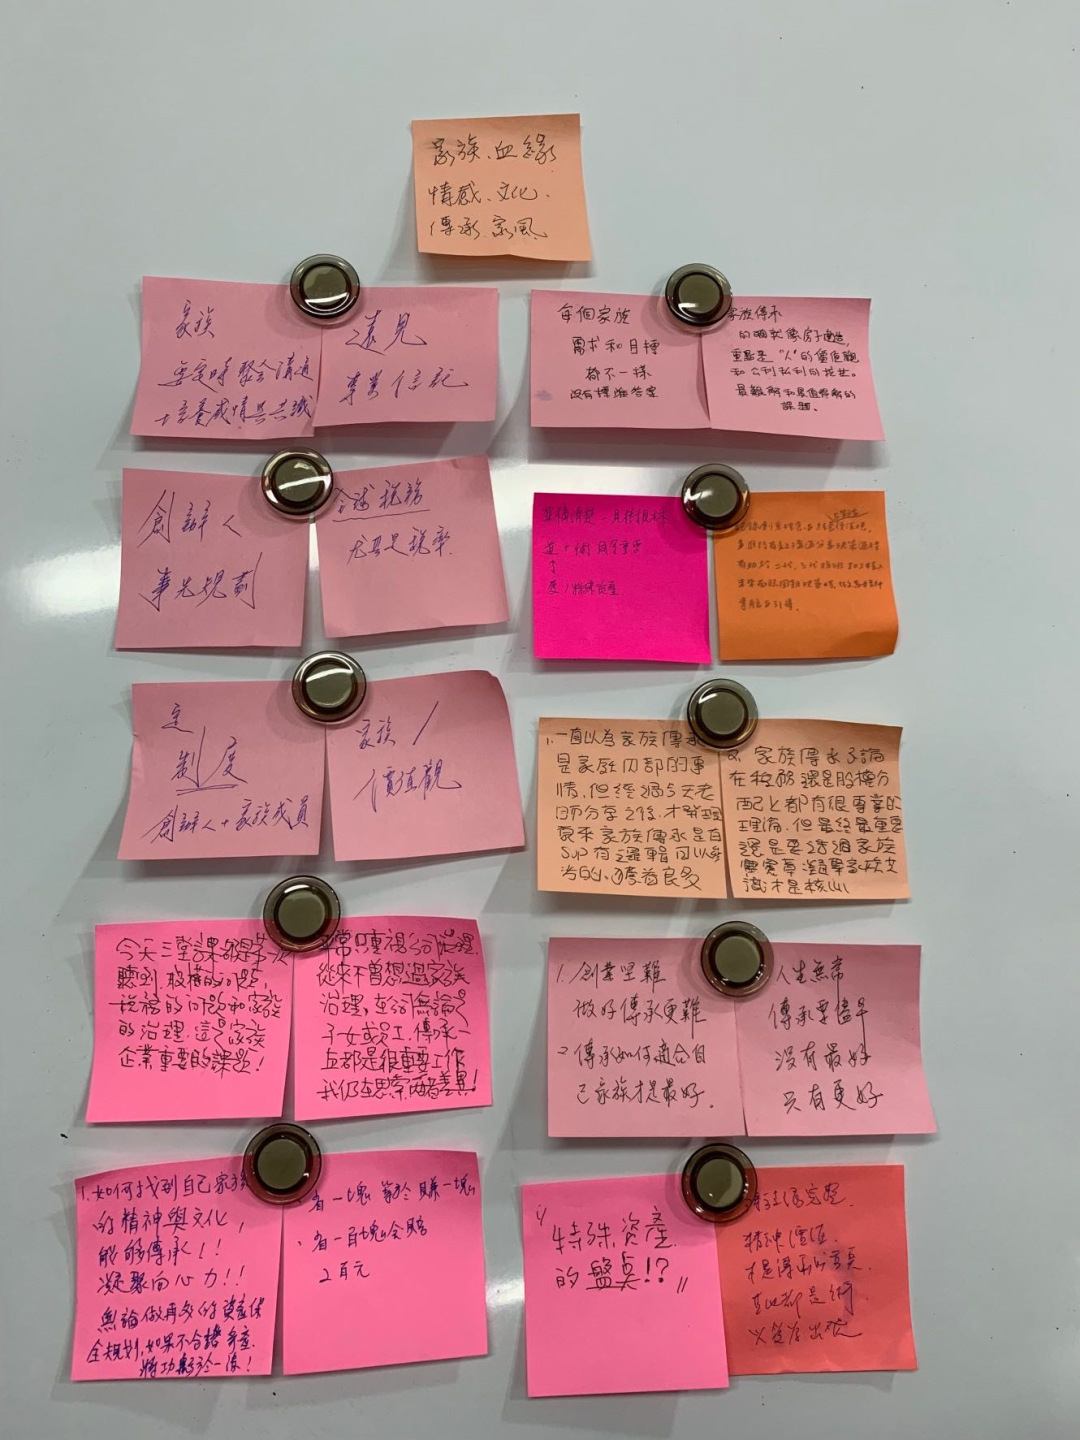 家族、血緣
情感、文化、
傳承、家風
家族
要定時聚會溝通
培養感情共共識
遠見
事業信託
每個家族
需求和目標
都不一樣
沒有標準答案
家族傳承
的確就像房子建造,
重點是“人”的價值觀
和公利私利的
最難解和最值得解的
課題。
創辦人
事先規劃
全球稅務
尤其是稅率
定
制度
創辦人+家族成員
家族/
價值觀
1. 一直以為家族傳承
是家庭內部的事
情,但經過5天老
師分享之後,才發現
原來家族傳承是有
SOP有邏輯可以參
考的,獲益良多
2. 家族傳承不論
在稅務還是股權分
配上都有很專業的
理論,但最終最重要
還是要透過家族
憲章凝聚家族共
識才是核心
今天三堂課都是第一次
聽到,股權的問題,
稅務的問題和家族
的治理,這是家族
企業重要的課題!
平常只重視公司治理,
從來不曾想過家族
治理,在公司無論是
子女或員工,傳承一
直都是很重要工作
我仍在思索兩者差異!
1. 創業里難
做好傳承更難
2. 傳承如何適合自
己家族才是最好.
人生無常
傳承要儘早
沒有最好
只有更好
1. 如何找到自己家族
的精神與文化,
能夠傳承!!
凝聚向心力!!
無論做再多的資產保
全規劃,如果不合諧爭產
將功虧於一簣!
省一塊 等於 賺一塊
省一百塊會賠
2百元
特殊資產
的盤點!?
精神價值
才是得
其他都是術